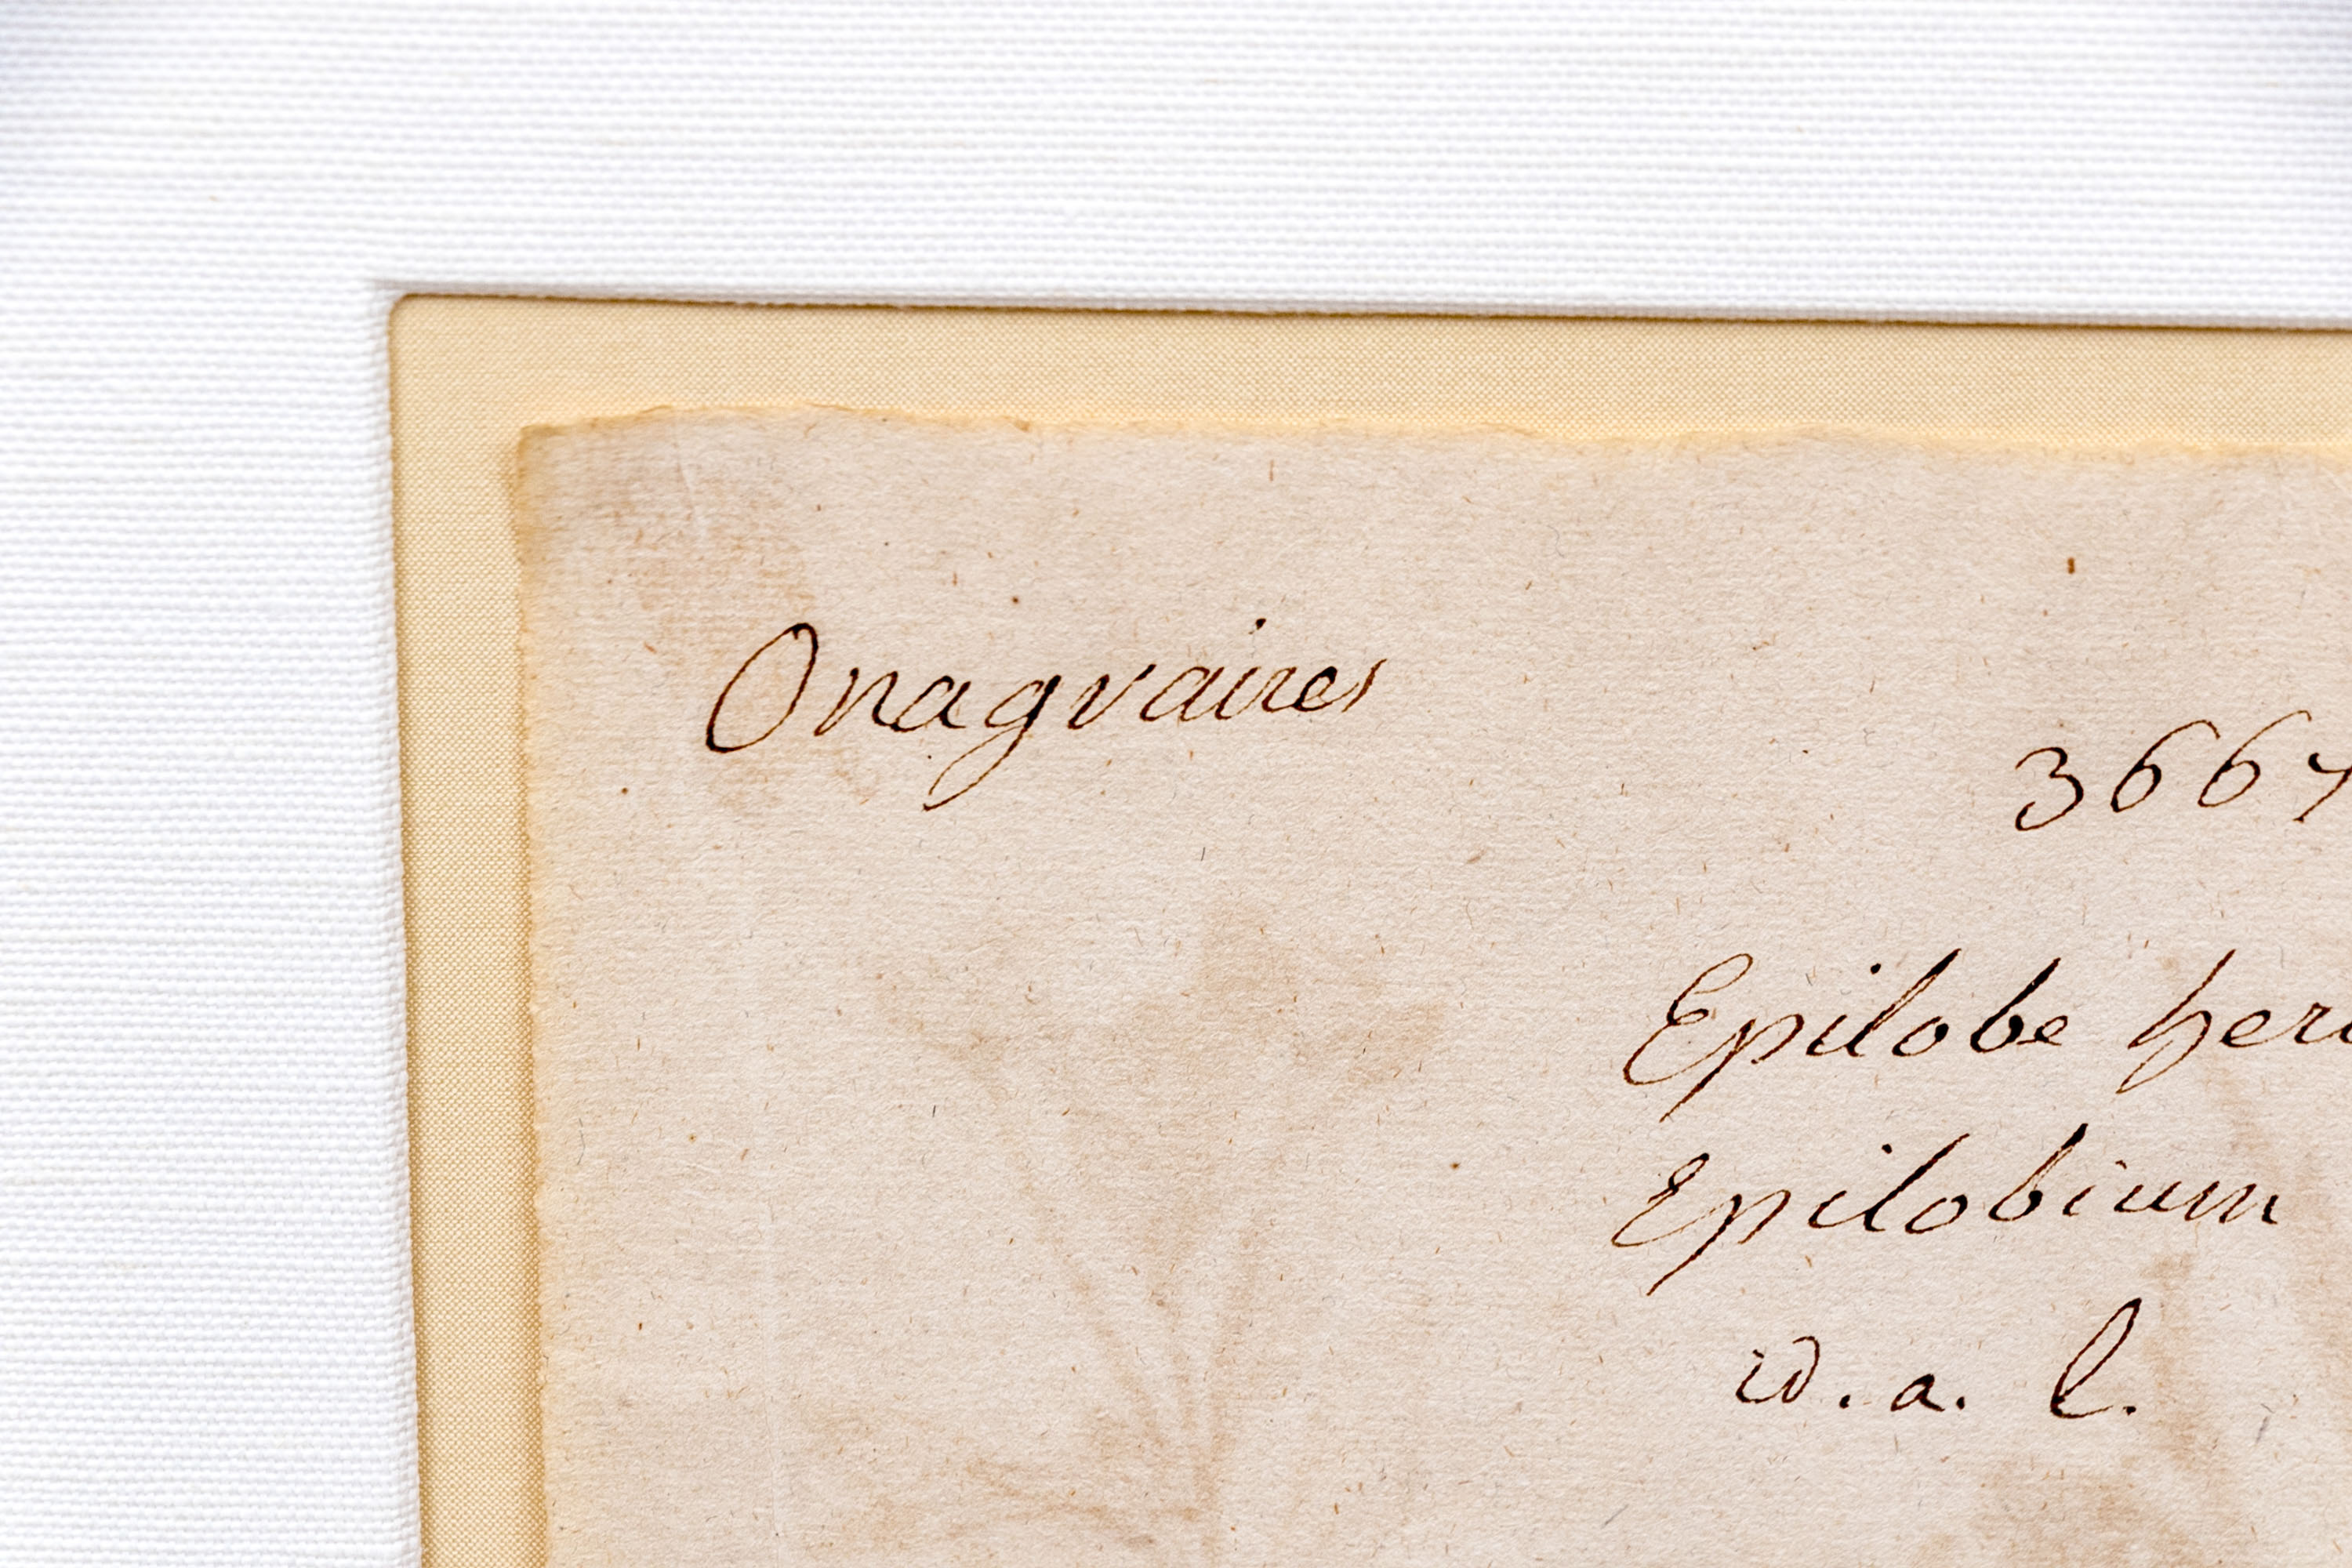 Onagraires
3667
Epilobe heri
Epilobium
id. a. l.